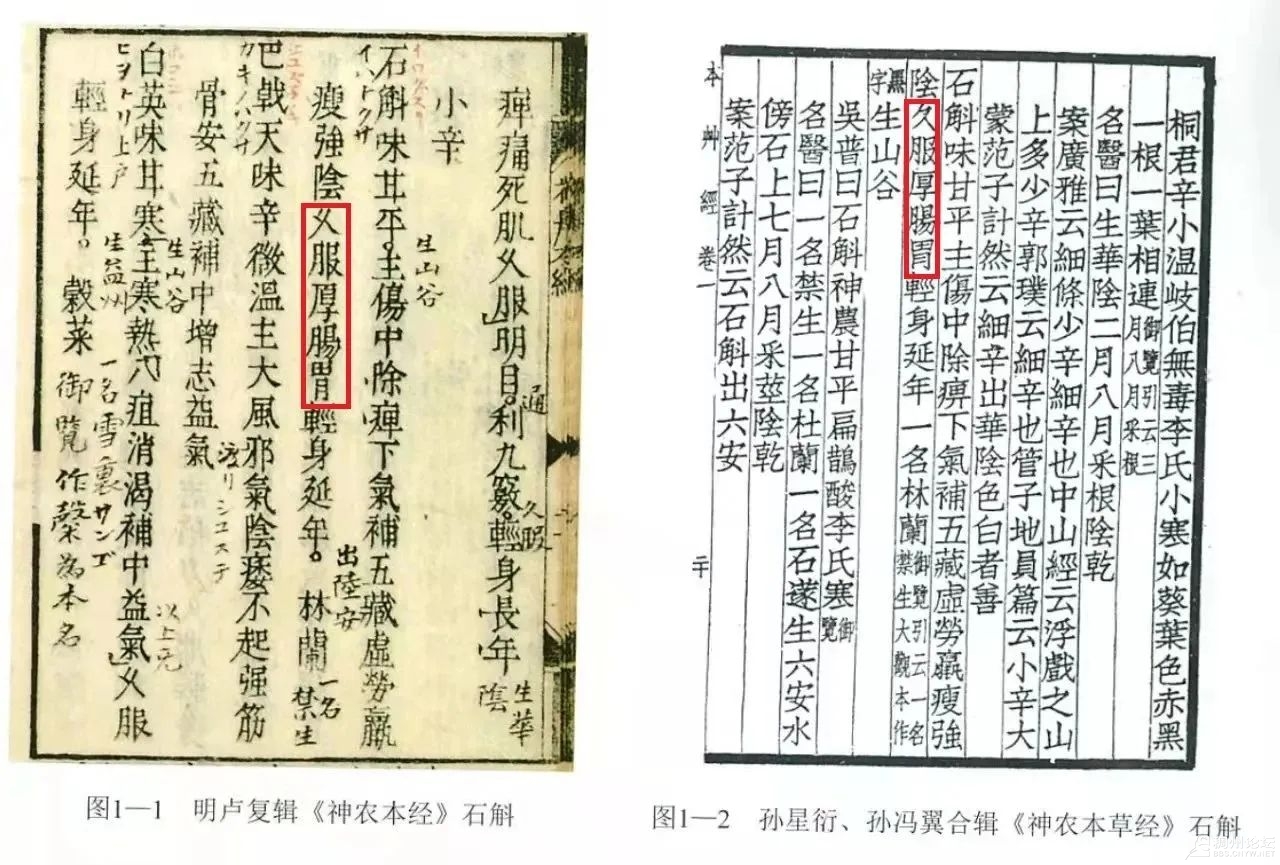 痺痛死肌久服明目。利九竅。輕身長年
通
久服
生華陰
小辛
石斛味甘平。主傷中除痺下氣補五藏虛勞羸
生山谷
イハトクサ
瘦強陰久服厚腸胃輕身延年。林蘭
出陸安
一名禁生
巴戟天味辛微溫主大風邪氣陰痿不起强筋
骨安五藏補中增志益氣
生山谷
白英味甘寒主寒熱八疽消渴補中益氣久服
生益州
以上元
輕身延年。穀菜
一名雪裏サンゴ
ヒヨトリ上戸
图1—1 明卢复辑《神农本经》石斛
桐君辛小温岐伯無毒李氏小寒如葵葉色赤黑
一根一葉相連御覽引云三月八月采根
名醫曰生華陰二月八月采根陰乾
案廣雅云細條少辛細辛也中山經云浮戲之山
上多少辛郭璞云細辛也管子地員篇云小辛大
蒙范子計然云細辛出華陰色白者善
石斛味甘平主傷中除痹下氣補五藏虛勞羸瘦強
陰久服厚腸胃輕身延年一名林蘭御覽引云一名禁生大觀本作
黑字生山谷
吳普曰石斛神農甘平扁鵲酸李氏寒御覽
名醫曰一名禁生一名杜蘭一名石蓫生六安水
傍石上七月八月采莖陰乾
案范子計然云石斛出六安
本艸經卷一
二十
图1—2 孙星衍、孙冯翼合辑《神农本草经》石斛